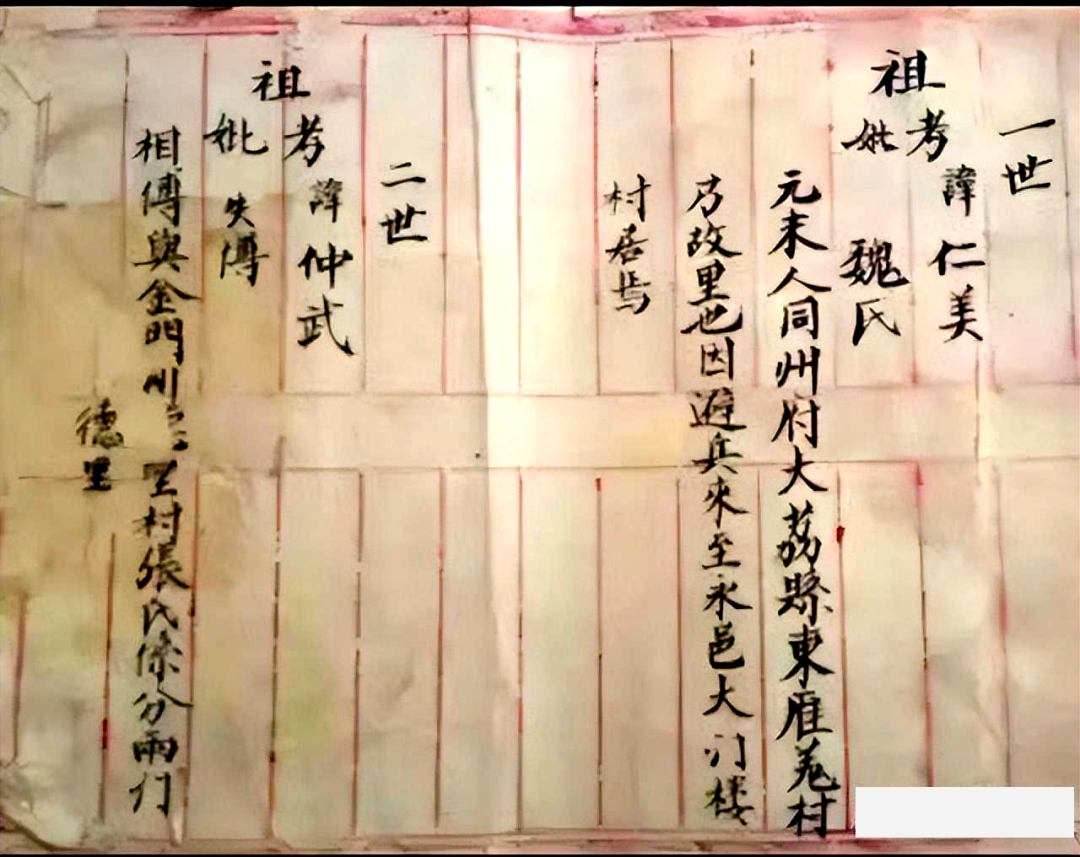 一世
祖考諱仁美
妣魏氏
元末人同州府大荔縣東雁羌村
乃故里也因避兵來至永邑大门楼
村居焉
二世
祖考諱仲武
妣失傳
相傳與金門川 里村張氏係分兩门
德里